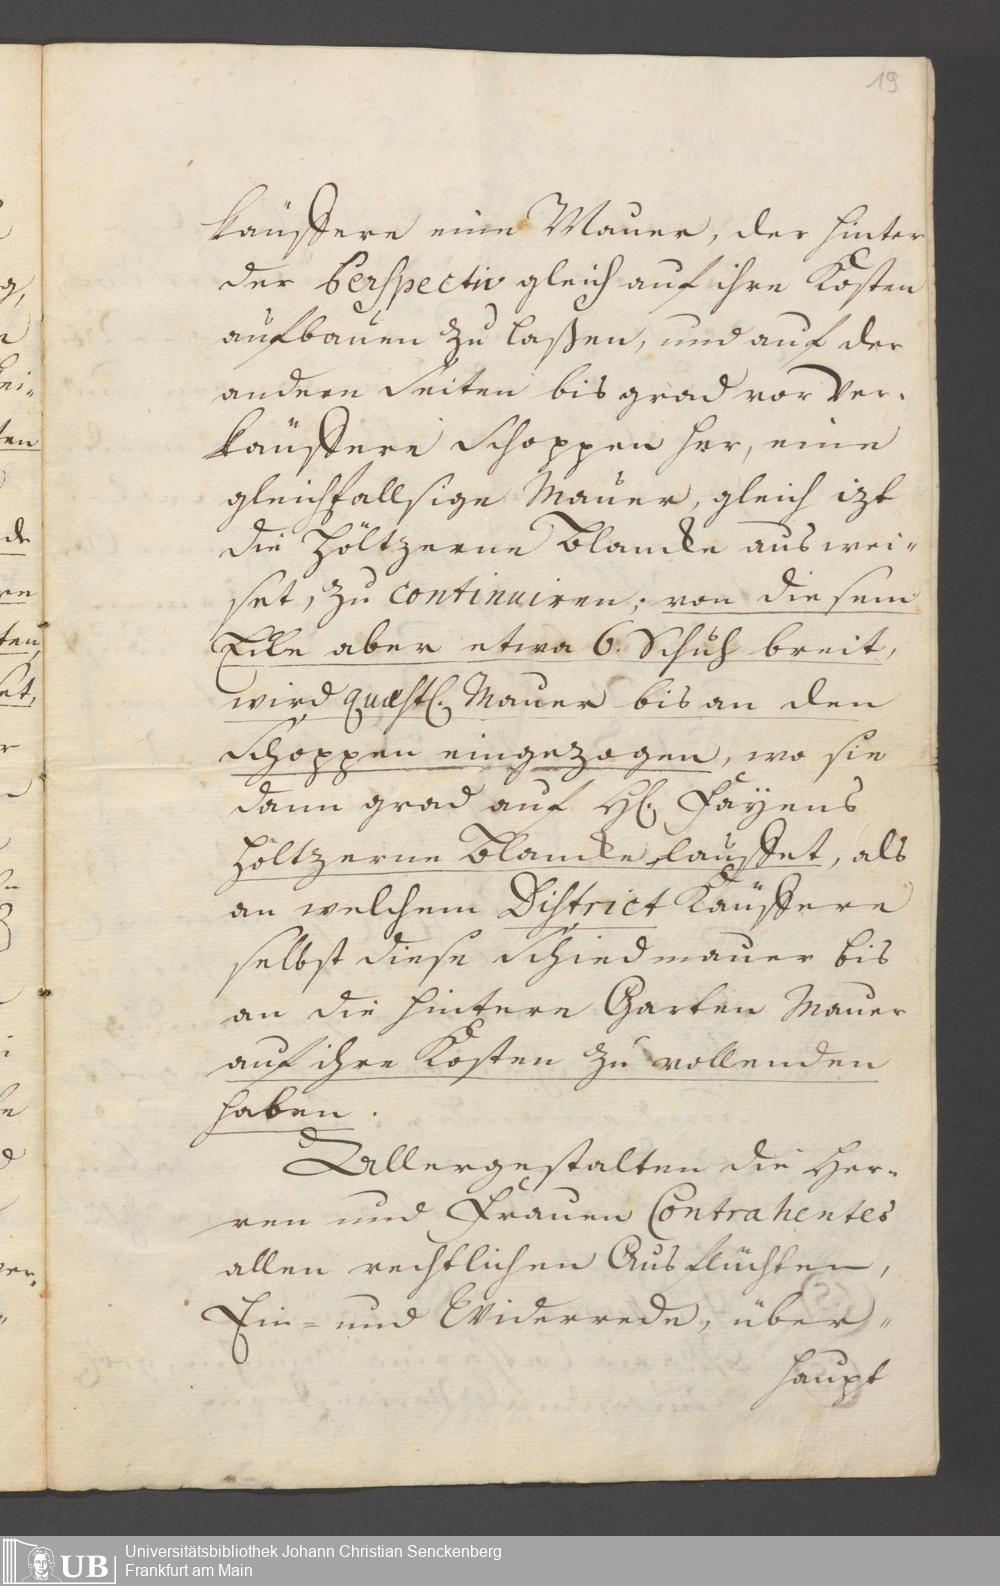 19
käuffere eine Mauer, der hinter
der Perspectiv gleich auf ihre Kosten
aufbauen zu laßen, und auf der
andern Seiten bis grad vor Ver-
käuffere Schoppen her, eine
gleichfallsige Mauer, gleich izt
die höltzerne Blancke auswei-
set, zu continuiren; von diesem
Ecke aber etwa 6. Schuh breit,
wird quæstl. Mauer bis an den
Schoppen eingezogen, wo sie
dann grad auf Hl. Fayens
höltzerne Blancke lauffet, als
an welchem District Käuffere
selbst diese Schiedmauer bis
an die hintere Garten Mauer
auf ihre Kosten zu vollenden
haben.
Allergestalten die Her-
ren und Frauen Contrahentes
allen rechtlichen Ausflüchten,
Ein- und Widerrede, über-
haupt
UB
Universitätsbibliothek Johann Christian Senckenberg
Frankfurt am Main